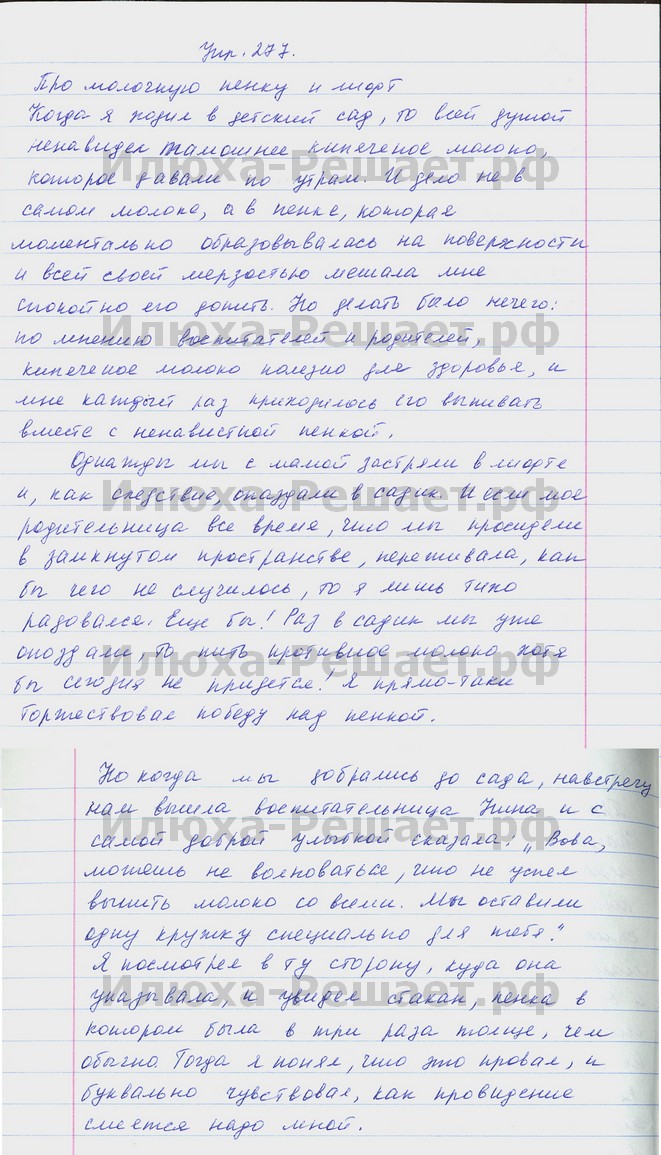 Упр. 277.
Про молочную пенку и лифт
Когда я ходил в детский сад, то всей душой
ненавидел тамошнее кипяченое молоко,
которое давали по утрам. И дело не в
самом молоке, а в пенке, которая
моментально образовывалась на поверхности
и всей своей мерзостью мешала мне
спокойно его допить. Но делать было нечего:
по мнению воспитателей и родителей,
кипяченое молоко полезно для здоровья, и
мне каждый раз приходилось его выпивать
вместе с ненавистной пенкой.
Однажды мы с мамой застряли в лифте
и, как следствие, опоздали в садик. И если моя
родительница все время, что мы просидели
в замкнутом пространстве, переживала, как
бы чего не случилось, то я лишь тихо
радовался. Еще бы! Раз в садик мы уже
опоздали, то пить противное молоко хотя
бы сегодня не придется! Я прямо-таки
торжествовал победу над пенкой.
Но когда мы добрались до сада, навстречу
нам вышла воспитательница Нина и с
самой доброй улыбкой сказала: „Вова,
можешь не волноваться, что не успел
выпить молоко со всеми. Мы оставили
одну кружку специально для тебя."
Я посмотрел в ту сторону, куда она
указывала, и увидел стакан, пенка в
котором была в три раза толще, чем
обычно. Тогда я понял, что это провал, и
буквально чувствовал, как провидение
смеется надо мной.
Илюха-Решает.рф
Илюха-Решает.рф
Илюха-Решает.рф
Илюха-Решает.рф
Илюха-Решает.рф
Илюха-Решает.рф